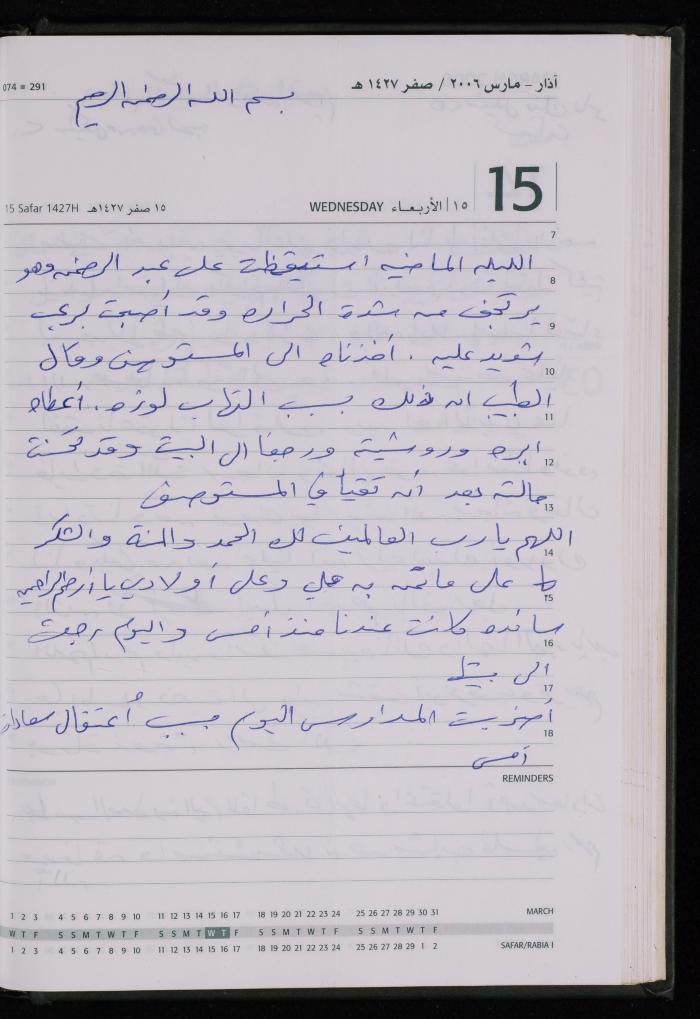 074 = 291
آذار - مارس ٢٠٠٦ / صفر ١٤٢٧ هـ
بسم الله الرحمن الرحيم
15
15 Safar 1427H ١٥ صفر ١٤٢٧هـ WEDNESDAY ١٥ | الأربعاء
7
الليله الماضيه استيقظت على عبد الرحمن وهو
8
يرتجف من شدة الحراره وقد أصبحت
9
شديد عليه . أخذناه الى المستوصف وقال
10
الطبيب ان ذلك بسبب التهاب لوزه . أعطاه
11
ابره وروشيته ورجعنا الى البيت وقد تحسنت
12
حالته بعد أن تقيأ في المستوصف
13
اللهم يارب العالمين لك الحمد والمنة والشكر
14
على ما تمن به علي وعلى أولادي يا أرحم الراحمين
15
سانده كانت عندنا منذ أمس واليوم رجعت
16
الى بيتها
17
أضربت المدارس اليوم بسبب أعتقال سعادات
18
أمس
REMINDERS
1 2 3 4 5 6 7 8 9 10 11 12 13 14 15 16 17 18 19 20 21 22 23 24 25 26 27 28 29 30 31 MARCH
W T F S S M T W T F S S M T W T F S S M T W T F S S M T W T F
1 2 3 4 5 6 7 8 9 10 11 12 13 14 15 16 17 18 19 20 21 22 23 24 25 26 27 28 29 1 2 SAFAR/RABIA I